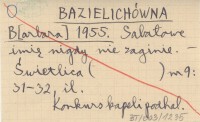 BAZIELICHÓWNA
B[arbara] 1955. Sabałowe
imię nigdy nie zaginie. -
Świetlica ( ) nr 9:
31-32, il.
Konkurs kapeli podhal.